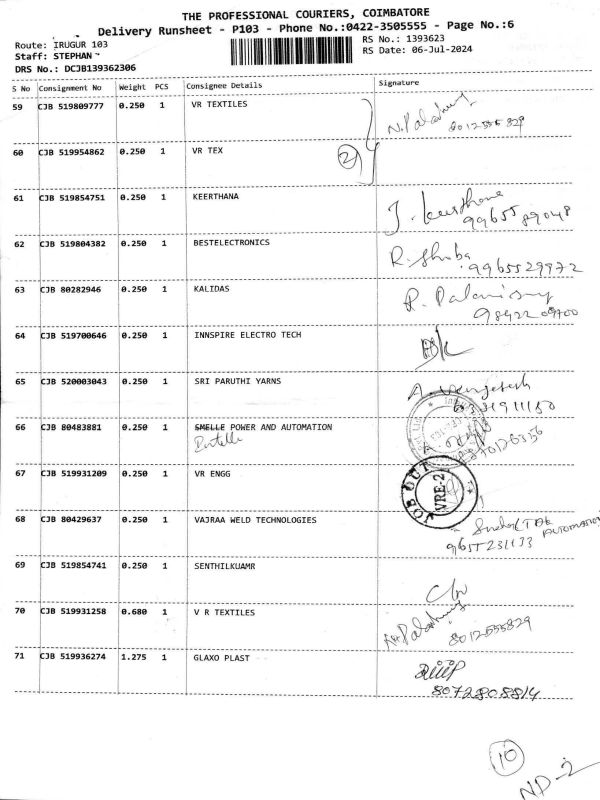 THE PROFESSIONAL COURIERS, COIMBATORE
Delivery Runsheet - P103 - Phone No.:0422-3505555 - Page No.:6
Route: IRUGUR 103
RS No.: 1393623
Staff: STEPHAN
RS Date: 06-Jul-2024
DRS No.: DCJB139362306
S No Consignment No Weight PCS Consignee Details Signature
59 CJB 519809777 0.250 1 VR TEXTILES
N. Palaniswamy
8012555829
60 CJB 519954862 0.250 1 VR TEX
2
61 CJB 519854751 0.250 1 KEERTHANA
J. Keerthana
9965589048
62 CJB 519804382 0.250 1 BESTELECTRONICS
R. Shoba
9965529972
63 CJB 80282946 0.250 1 KALIDAS
P. Palanisamy
64 CJB 519700646 0.250 1 INNSPIRE ELECTRO TECH
65 CJB 520003043 0.250 1 SRI PARUTHI YARNS
A.
66 CJB 80483881 0.250 1 SMELLE POWER AND AUTOMATION
67 CJB 519931209 0.250 1 VR ENGG
JOB OUT
VRE-2
68 CJB 80429637 0.250 1 VAJRAA WELD TECHNOLOGIES
AUTOMATION
9655231133
69 CJB 519854741 0.250 1 SENTHILKUAMR
70 CJB 519931258 0.680 1 V R TEXTILES
Palaniswamy
8012555829
71 CJB 519936274 1.275 1 GLAXO PLAST
8072808814
10
ND-2